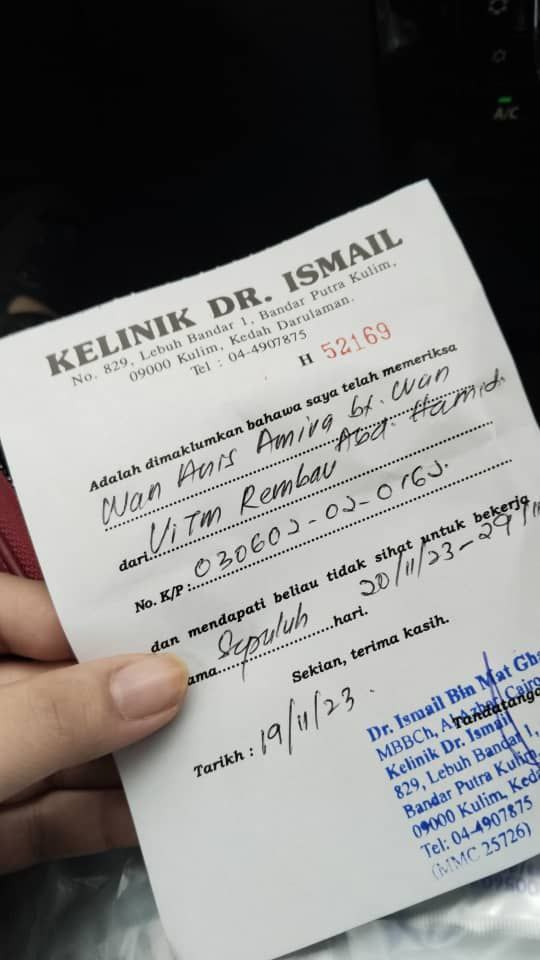 A/C
KELINIK DR. ISMAIL
No. 829, Lebuh Bandar 1, Bandar Putra Kulim,
09000 Kulim, Kedah Darulaman.
Tel : 04-4907875
H 52169
Adalah dimaklumkan bahawa saya telah memeriksa
Wan Anis Amira bt. Wan
Abd. Hamid.
dari UiTM Rembau
No. K/P : 030602-02-0162.
dan mendapati beliau tidak sihat untuk bekerja
ama Sepuluh hari. 20/11/23-29/11
Sekian, terima kasih.
Tarikh : 19/11/23.
Tandatanga
Dr. Ismail Bin Mat Gha
MBBCh, Al Azhar Cairo
Kelinik Dr. Ismail
829, Lebuh Bandar 1,
Bandar Putra Kulim,
09000 Kulim, Keda
Tel: 04-4907875
(MMC 25726)